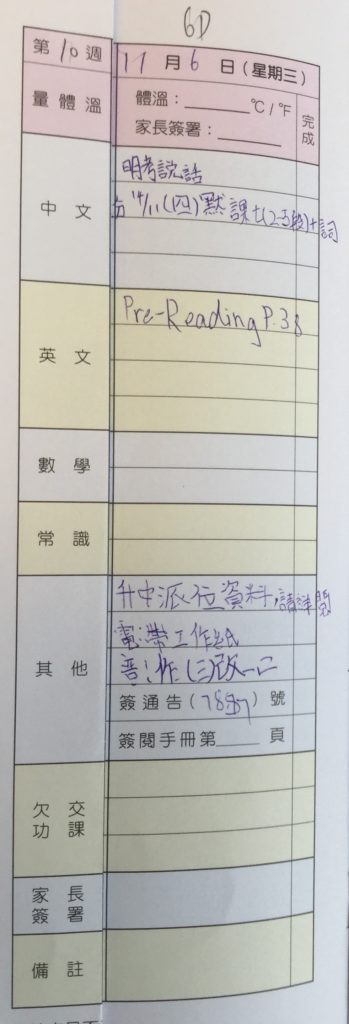 6D
第10週 11月6日(星期三)
量體溫 體溫：______°C/°F 完成
家長簽署：______
中文 明考説話
14/11(四)默課七(2-5段)+詞
英文 Pre-Reading P.38
數學
常識
其他 升中派位資料,請詳閱
電:帶工作紙
音:作(三)改一二
簽通告(78 )號
簽閱手冊第____頁
欠交功課
家長簽署
備註